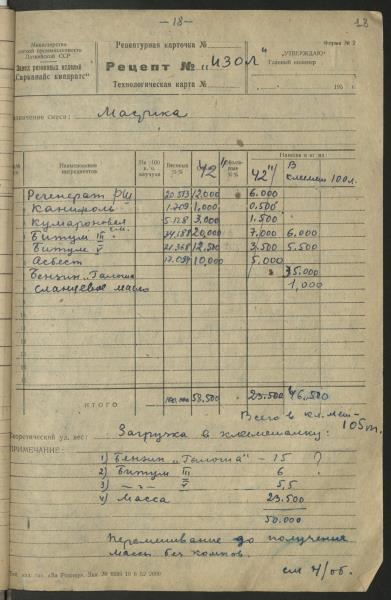 — 18 —
18
Министерство
легкой промышленности
Латвийской ССР
Завод резиновых изделий
„Сарканайс квадратс"
Рецептурная карточка №
Рецепт № „ИЗОЛ"
Технологическая карта №
Форма № 2
„УТВЕРЖДАЮ"
Главный инженер
195 г.
Назначение смеси: Мастика
Наименование ингредиентов
На 100 в. ч. каучука
Весовые %%
42"
Объемные %%
Навеска в кг на:
42"
В клеемеш 100л.
Регенерат РШ 20.513 12,000 6.000
Канифоль 1.709 1,000 0.500
Кумароновая см. 5.128 3,000 1.500
Битум III 34.188 20,000 7,000 6,000
Битум V 21.368 12,500 3,500 5.500
Асбест 17.094 10,000 5.000
Бензин „Галоша 35.000
Сланцевое масло 1,000
ИТОГО 100.000 58,500 23.500 46,500
Всего в кл. меш-
105 т.
Теоретический уд. вес:
Загрузка в клеемешалку:
ПРИМЕЧАНИЕ:
1) Бензин „Галоша" - 15
2) Битум III 6
3) -"- V 5,5
4) Масса 23.500
50.000
Перемешивание до получения
массы без комков.
см н/об.